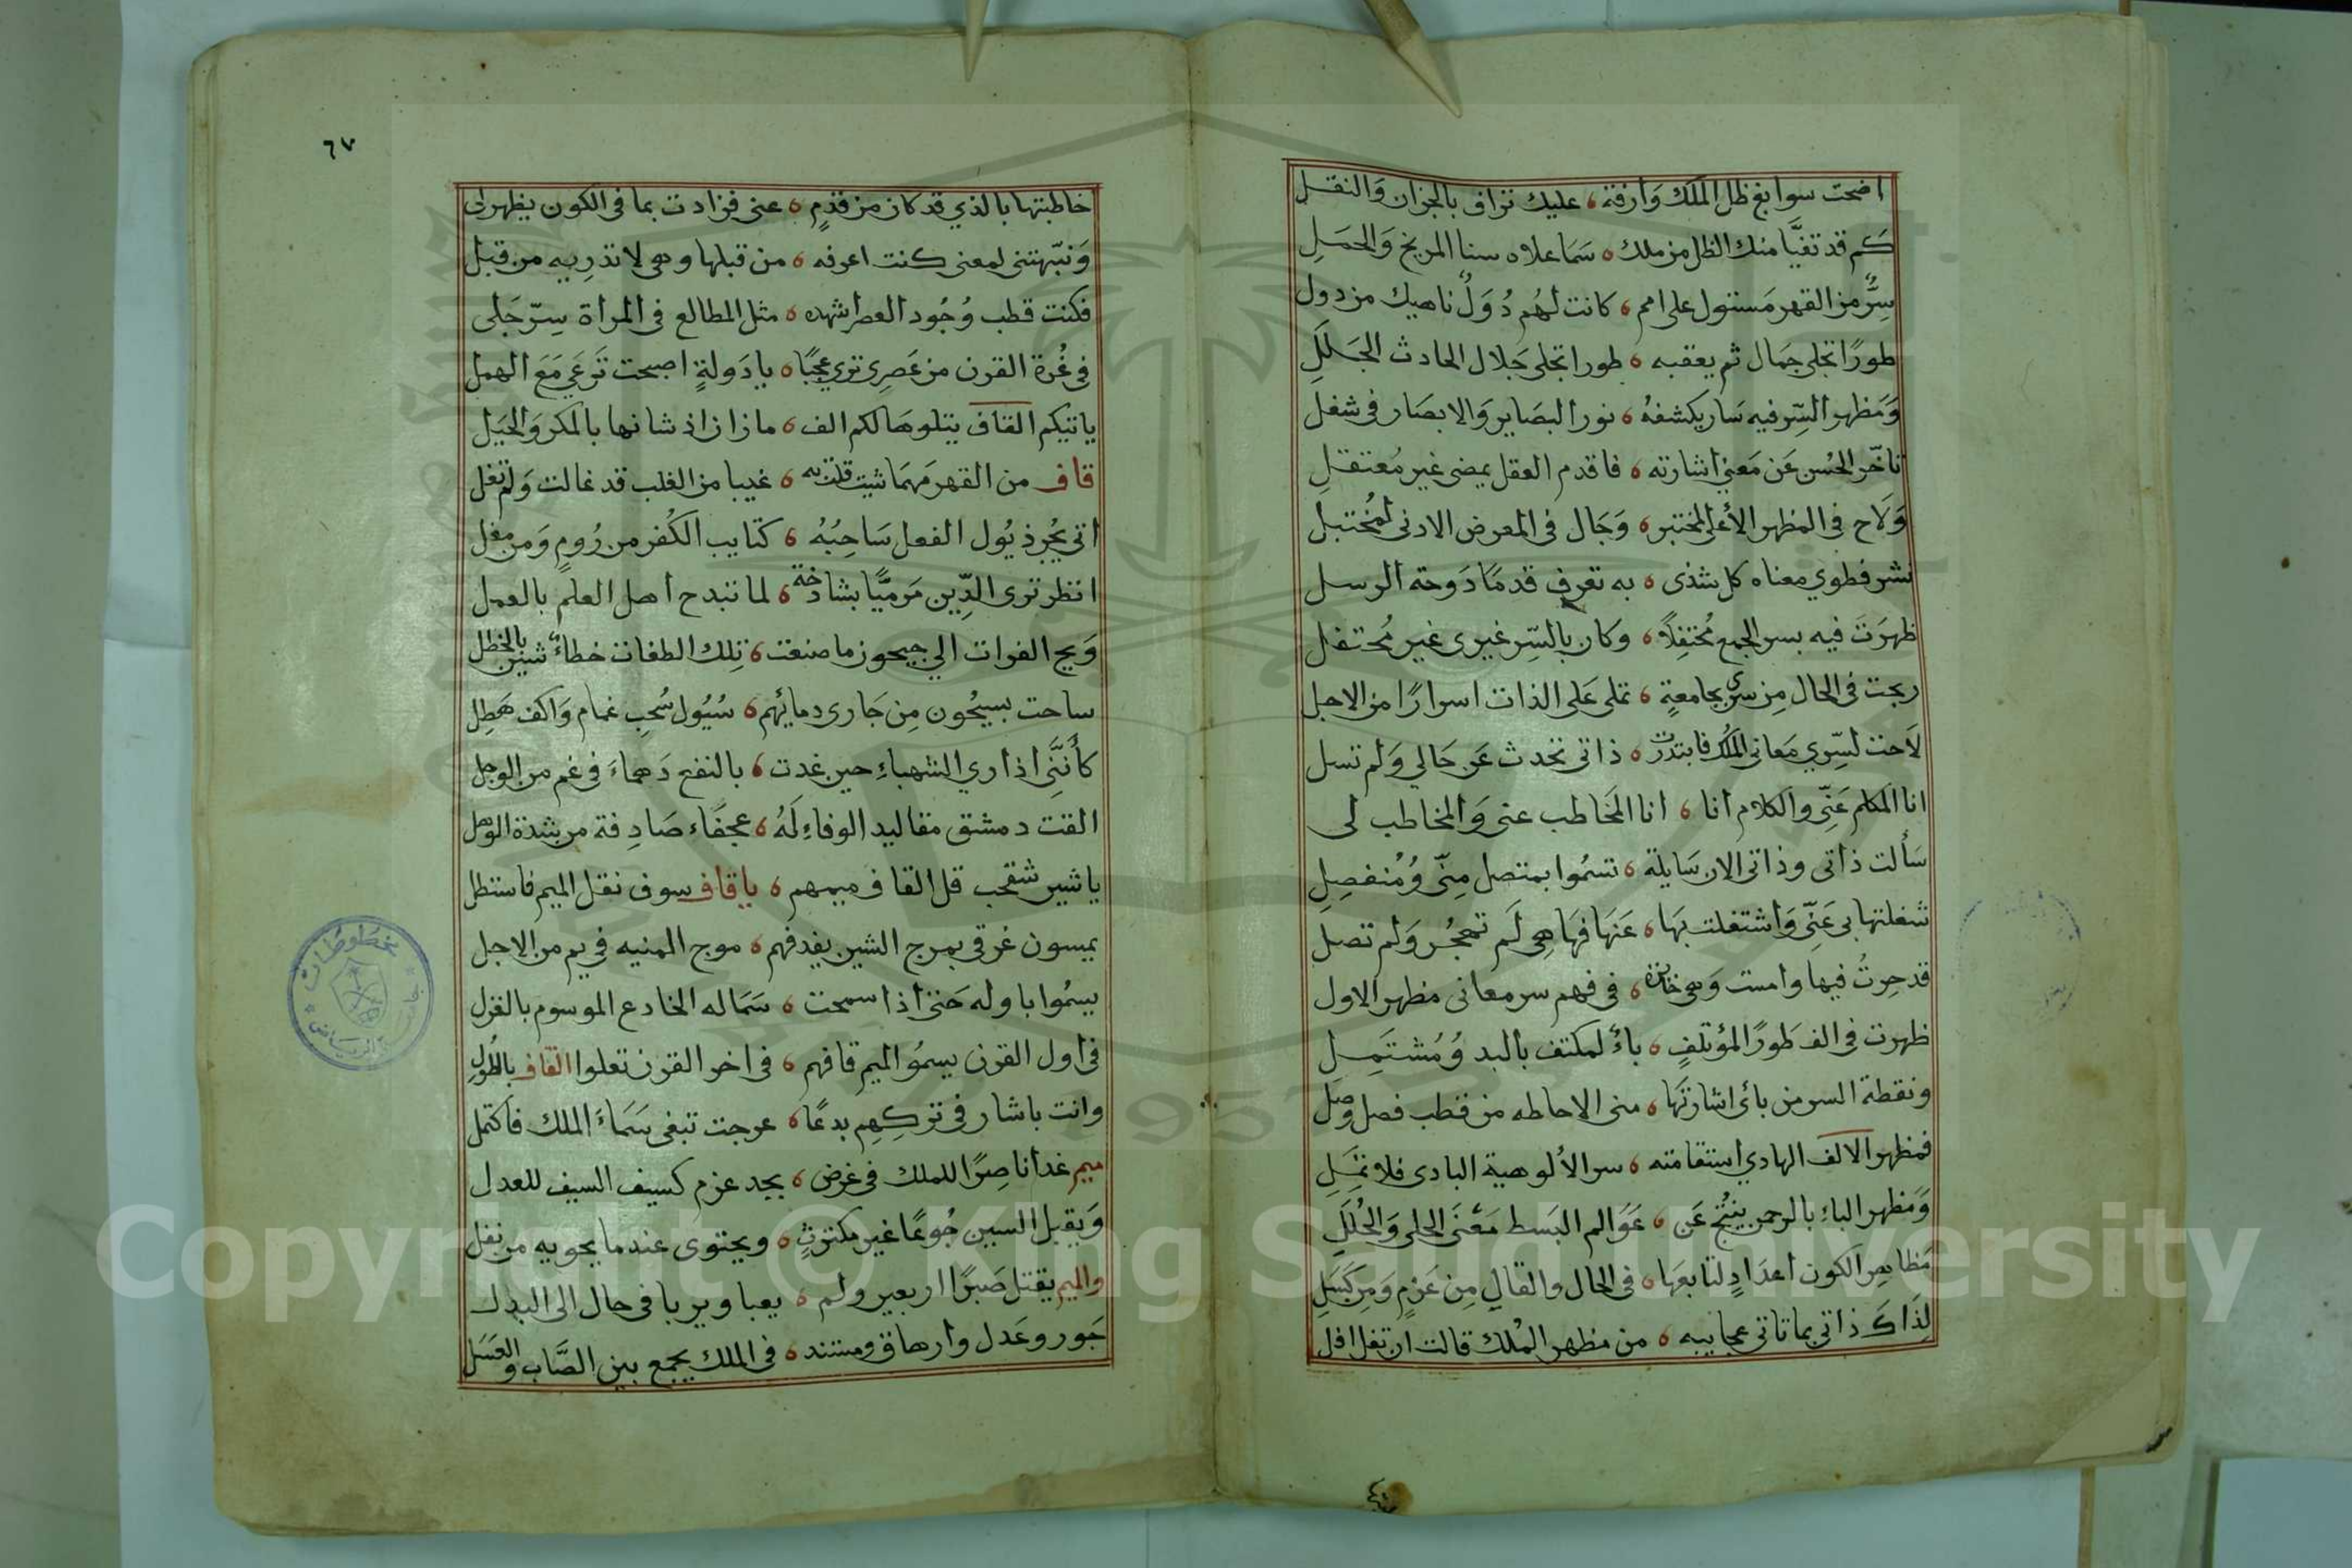 اضحت سوابغ ظل الملك وارفة ، عليك تزاف بالجزان والنقل
كم قد تفيّا منك الظل من ملك ، سما علاه سنا المريخ والحمل
سرٌّ من القهر مستول على امم ، كانت لهم دولٌ ناهيك من دول
طورًا تجلى جمال ثم يعقبه ، طورا تجلى جلال الحادث الجلل
ومظهر السّر فيه سار يكشفهُ ، نور البصاير والابصار في شغل
تاخّر الحسن عن معنى اشارته ، فاقدم العقل يمضي غير معتقل
ولاح في المظهر الأعلى لمختبر ، وجال في المعرض الادنى لمختبل
نشر فطوي معناه كل شذى ، به تعرف قدمًا دوحة الرسل
ظهرت فيه بسر الجمع مختفلاً ، وكان بالسّر غيري غير محتفل
ربحت في الحال من سري بجامعةٍ ، تملى على الذات اسرارًا من الاجل
لاحت لسّري معاني الملك فابتدرت ، ذاتي تحدث عن حالي ولم تسل
انا المكلم عنّي والكلام انا ، انا المخاطب عني والمخاطب لي
سألت ذاتي وذاتي الان سايلة ، تسموا بمتصل منّي ومنفصل
شغلتها بي عنّي واشتغلت بها ، عنها فها هي لم تهجر ولم تصل
قد حرتُ فيها وامست وهي حايرة ، في فهم سر معاني مظهر الاول
ظهرت في الف طورًا لمؤتلفٍ ، باءٌ لمكتف بالبد ومشتمل
ونقطة السر من بائي اشارتها ، مني الاحاطه من قطب فصل وصل
فمظهر الالف الهادي استقامته ، سر الألوهية البادي فلا تمل
ومظهر الباء بالرحمن ينتج عن ، عوالم البسط معنى الحلى والحلل
مظاهر الكون اعدادٍ لتابعها ، في الحال والقال من عزمٍ ومن كسل
لذاك ذاتي بما تاتي عجايبه ، من مظهر الملك قالت ان تقل اقل
٦٧
خاطبتها بالذي قد كان من قدمٍ ، عني فزادت بما في الكون يظهر لي
ونبّهتني لمعنى كنت اعرفه ، من قبلها وهي لا تدريه من قبل
فكنت قطب وجود العصر اشهده ، مثل المطالع في المراة سرّ جلي
في غرة القرن من عصري ترى عجبًا ، يا دولةٍ اصبحت ترعى مع الهمل
ياتيكم القاف يتلوها لكم الف ، ما زان اذ شانها بالمكر والحيل
قاف من القهر مهما شيت قلت به ، غيبا من الغلب قد غالت ولم تغل
اتى يجر ذيول الفعل ساحبُهُ ، كتايب الكفر من رومٍ ومن مغل
انظر ترى الدّين مرميًّا بشادخة ، لما تبدح اهل العلم بالعمل
ويح الفرات الى جيحون ما صنعت ، تلك الطغات خطاءً شين بالخطل
ساحت بسيحون من جاري دمائهم ، سيول سحب غمام واكف هطل
كأنّني اذ اري الشهباء حين غدت ، بالنقع دهماء في غم من الوجل
القت دمشق مقاليد الوفاء له ، عجفاء صادفة من شدة الوهل
يا شير شقحب قل القاف ميمهم ، ياقاف سوف نقل الميم فاستطل
يمسون غرقى بمرج الشين يقدفهم ، موج المنيه في يم من الاجل
يسموا باوله حتى اذا سمحت ، سما له الخادع الموسوم بالغزل
في اول القرن يسمو الميم قافهم ، في اخر القرن تعلوا القاف بالطول
وانت باشار في تركهم بدعًا ، عرجت تبغى سماء الملك فاكتمل
ميم غدا ناصرًا للملك في غرض ، بجد عزم كسيف السيف للعدل
ويقبل السين جوعًا غير مكترث ، ويحتوى عند ما يحويه من نفل
والميم يقتل صبرًا اربعين ولم ، يعبا ويربا في حال الى البدل
جور وعدل وارهاق ومستند ، في الملك يجمع بين الصّاب والعسل
مخطوطات
Copyright © King Saud University
1957